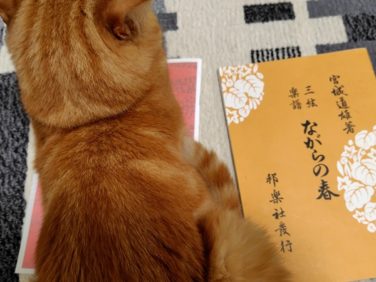 宮城道雄著
三絃
楽譜
ながらの春
邦楽社発行